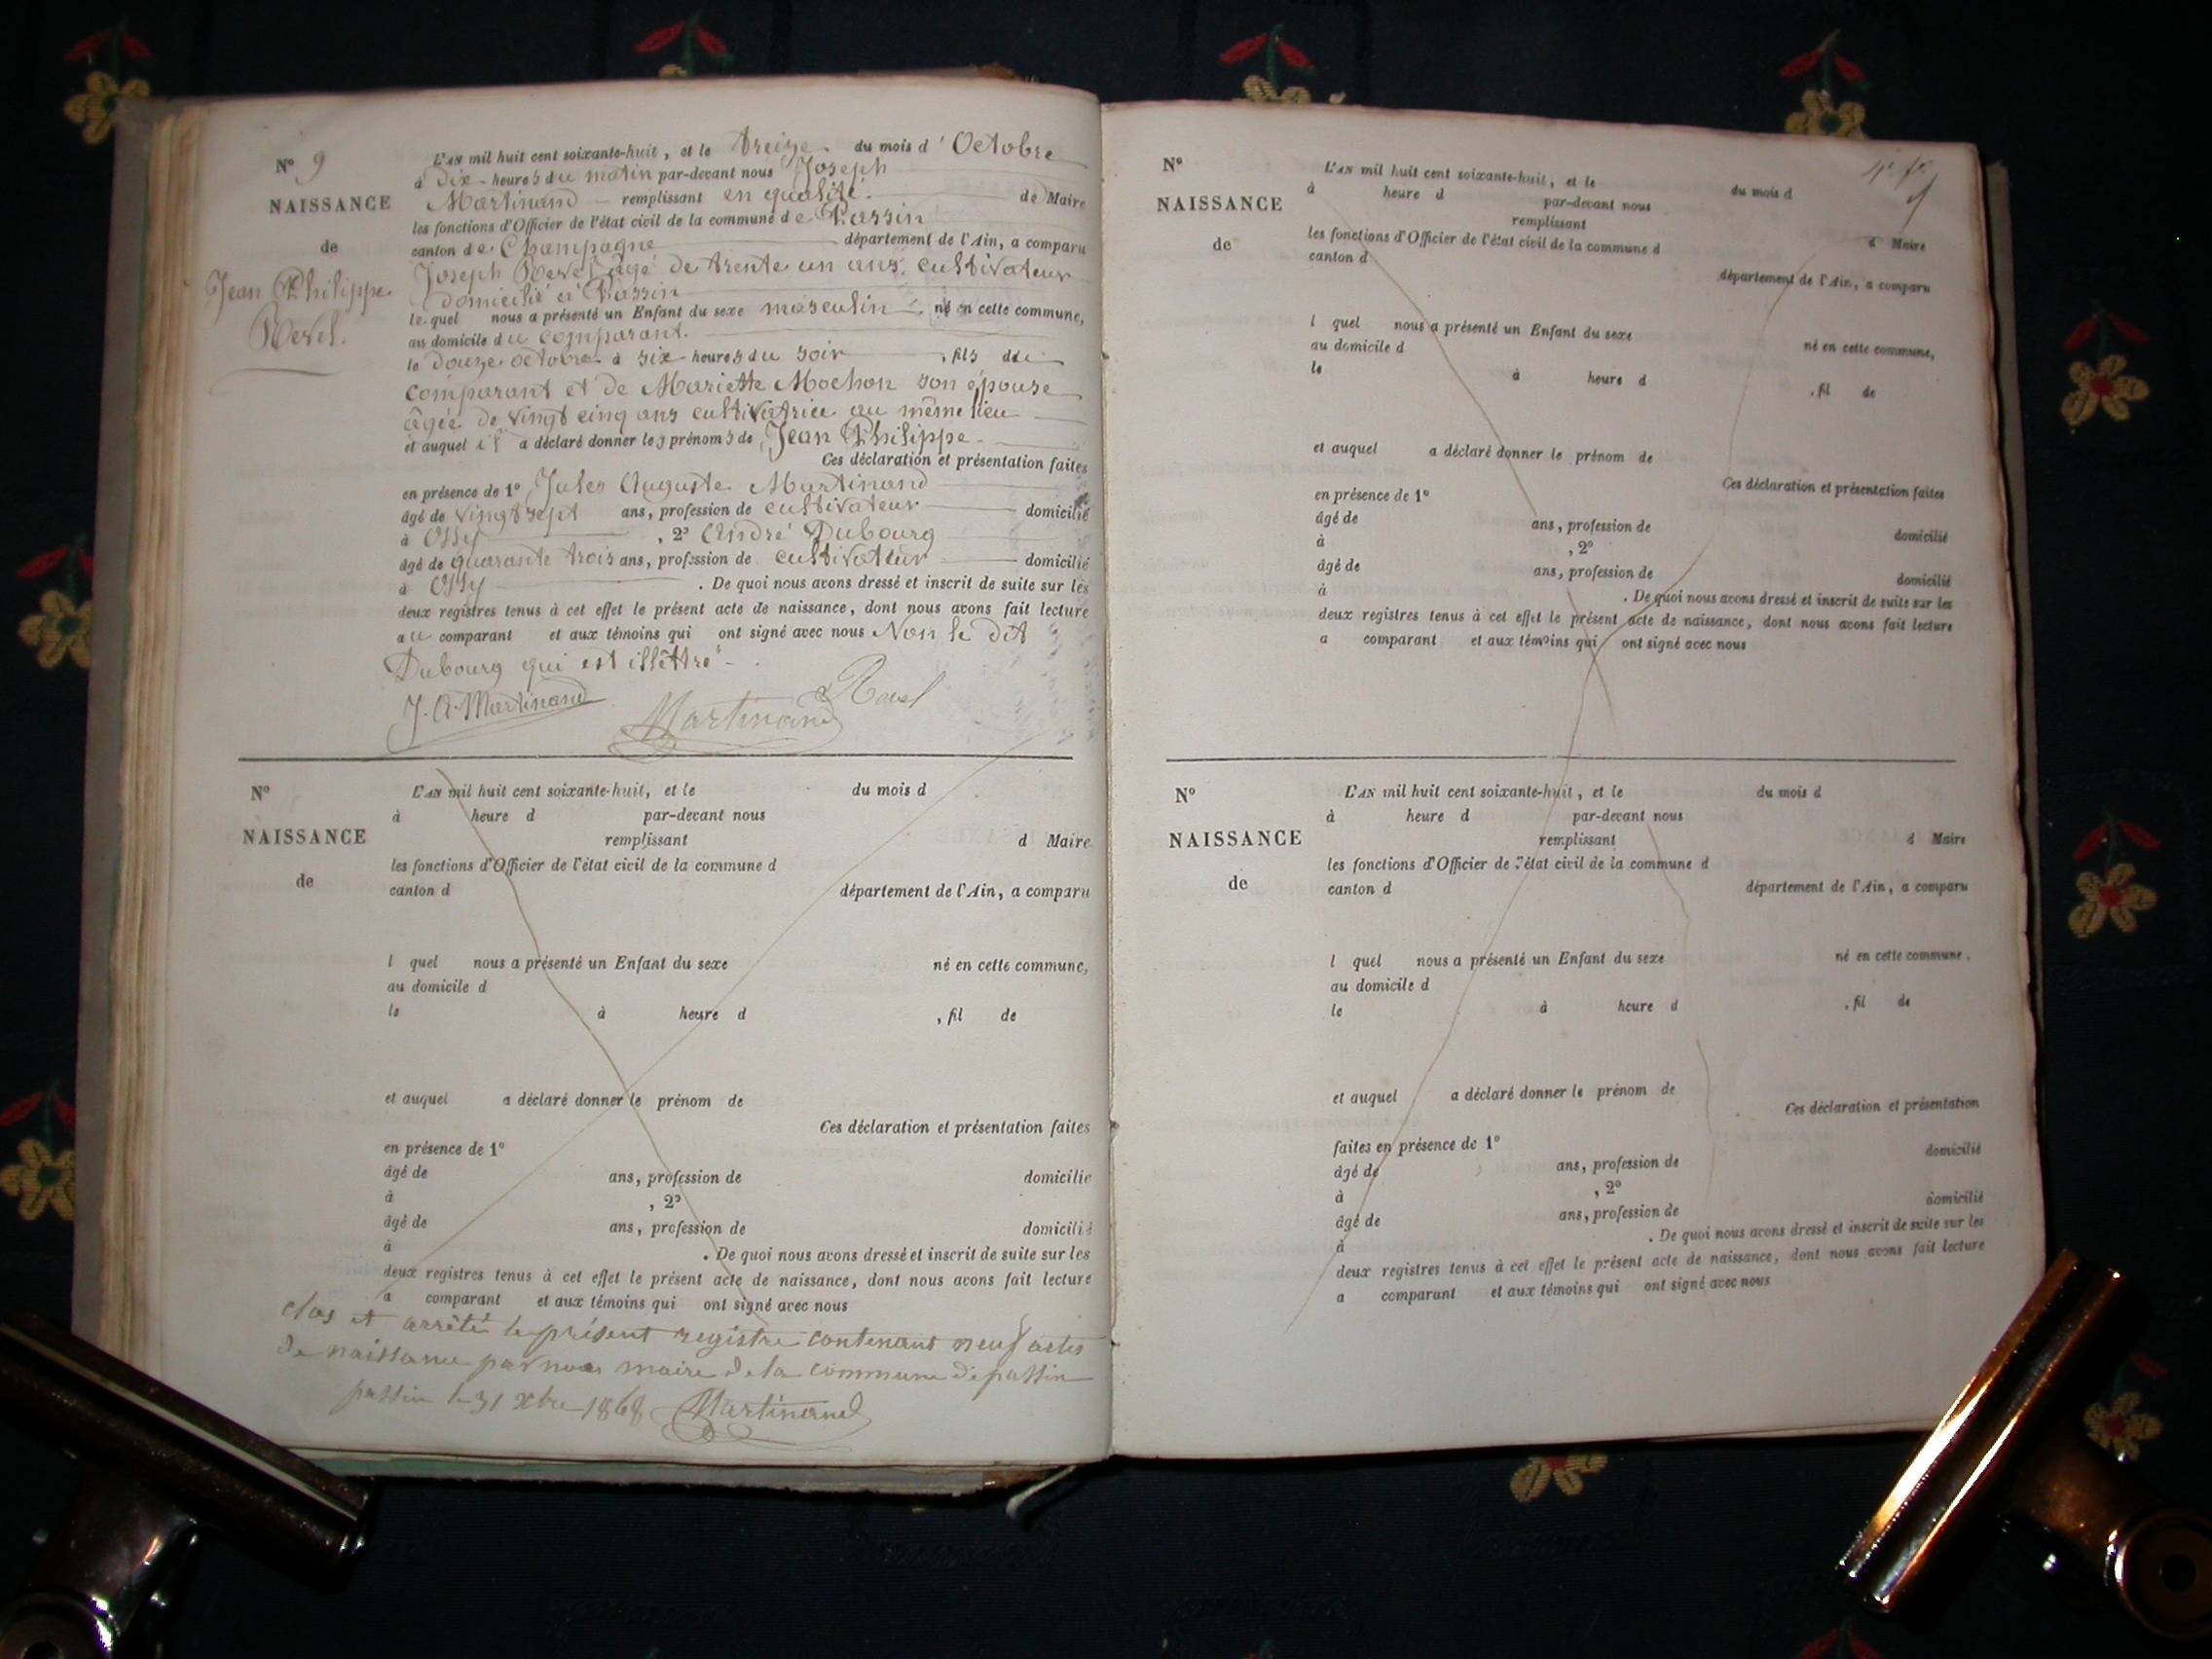 N° 9
NAISSANCE
de
Jean Philippe
Revel.
L'AN mil huit cent soixante-huit, et le treize du mois d'Octobre
à dix heures du matin par-devant nous Joseph
Martinand remplissant en qualité de Maire
les fonctions d'Officier de l'état civil de la commune de Passin
canton de Champagne département de l'Ain, a comparu
Joseph Revel âgé de trente un ans, cultivateur
domicilié à Passin
le quel nous a présenté un Enfant du sexe masculin né en cette commune,
au domicile du comparant.
le douze octobre à six heures du soir, fils du
comparant et de Mariette Mochon son épouse
âgée de vingt cinq ans cultivatrice au même lieu
et auquel il a déclaré donner les prénoms de Jean Philippe.
Ces déclaration et présentation faites
en présence de 1° Jules Auguste Martinand
âgé de vingt sept ans, profession de cultivateur domicilié
à Ossy, 2° André Dubourg
âgé de quarante trois ans, profession de cultivateur domicilié
à Ossy. De quoi nous avons dressé et inscrit de suite sur les
deux registres tenus à cet effet le présent acte de naissance, dont nous avons fait lecture
au comparant et aux témoins qui ont signé avec nous Non le dit
Dubourg qui est illettré.
J. A. Martinand Martinand Revel
N°
NAISSANCE
de
L'AN mil huit cent soixante-huit, et le du mois d
à heure d par-devant nous
remplissant d Maire
les fonctions d'Officier de l'état civil de la commune d
canton d département de l'Ain, a comparu
l quel nous a présenté un Enfant du sexe né en cette commune,
au domicile d
le à heure d , fil de
et auquel a déclaré donner le prénom de
Ces déclaration et présentation faites
en présence de 1°
âgé de ans, profession de domicilié
à , 2°
âgé de ans, profession de domicilié
à . De quoi nous avons dressé et inscrit de suite sur les
deux registres tenus à cet effet le présent acte de naissance, dont nous avons fait lecture
a comparant et aux témoins qui ont signé avec nous
clos et arrêté le présent registre contenant neuf actes
de naissance par nous maire de la commune de passin
passin le 31 xbre 1868 Martinand
N°
NAISSANCE
de
L'AN mil huit cent soixante-huit, et le du mois d
à heure d par-devant nous
remplissant d Maire
les fonctions d'Officier de l'état civil de la commune d
canton d département de l'Ain, a comparu
l quel nous a présenté un Enfant du sexe né en cette commune,
au domicile d
le à heure d , fil de
et auquel a déclaré donner le prénom de
Ces déclaration et présentation faites
en présence de 1°
âgé de ans, profession de domicilié
à , 2°
âgé de ans, profession de domicilié
à . De quoi nous avons dressé et inscrit de suite sur les
deux registres tenus à cet effet le présent acte de naissance, dont nous avons fait lecture
a comparant et aux témoins qui ont signé avec nous
N°
NAISSANCE
de
L'AN mil huit cent soixante-huit, et le du mois d
à heure d par-devant nous
remplissant d Maire
les fonctions d'Officier de l'état civil de la commune d
canton d département de l'Ain, a comparu
l quel nous a présenté un Enfant du sexe né en cette commune.
au domicile d
le à heure d , fil de
et auquel a déclaré donner le prénom de
Ces déclaration et présentation
faites en présence de 1°
âgé de ans, profession de domicilié
à , 2°
âgé de ans, profession de domicilié
à . De quoi nous avons dressé et inscrit de suite sur les
deux registres tenus à cet effet le présent acte de naissance, dont nous avons fait lecture
a comparant et aux témoins qui ont signé avec nous